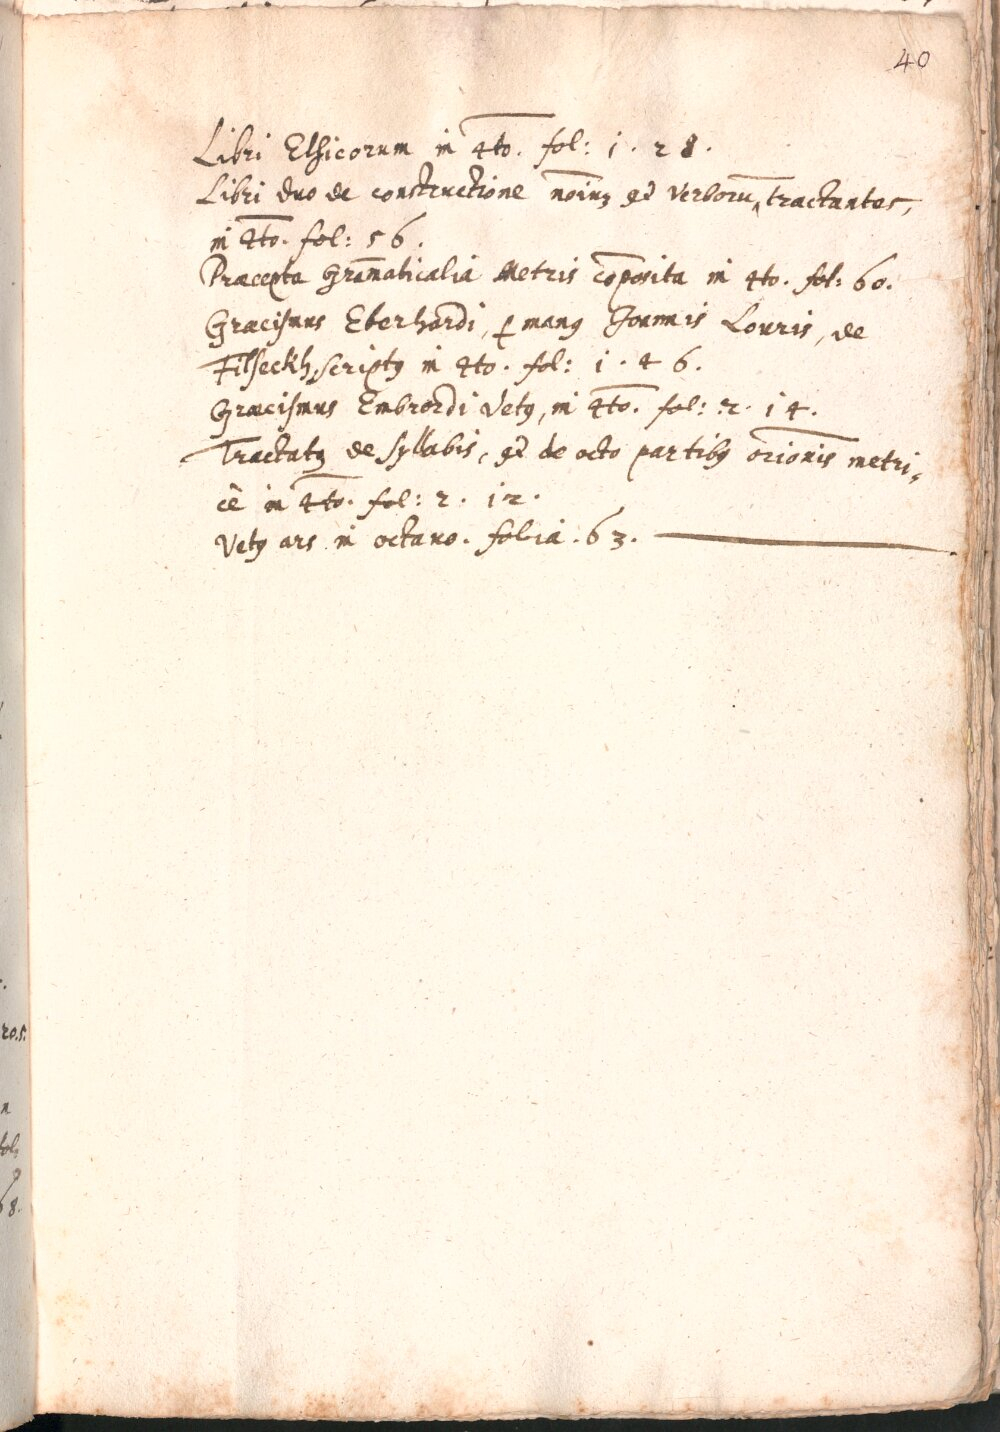 40
Libri Ethicorum in 4to. fol: 1. 28.
Libri duo de constructione noīuꝫ et verborū tractantes,
in 4to. fol: 56.
Præcepta Gram̄aticalia Metris cōposita in 4to. fol: 60.
Græcismus Eberhardi, ꝑ manꝰ Joannis Louris, de
Filseckh, scriptꝰ in 4to. fol: 1. 46.
Græcismus Embrordi vetꝰ, in 4to. fol: 2. 14.
Tractatꝰ de syllabis, et de octo partibꝰ orīonis metri,
cè in 4to. fol: 2. 12.
Vetꝰ ars in octavo. folia. 63.
20.5.
n
fol:
68.